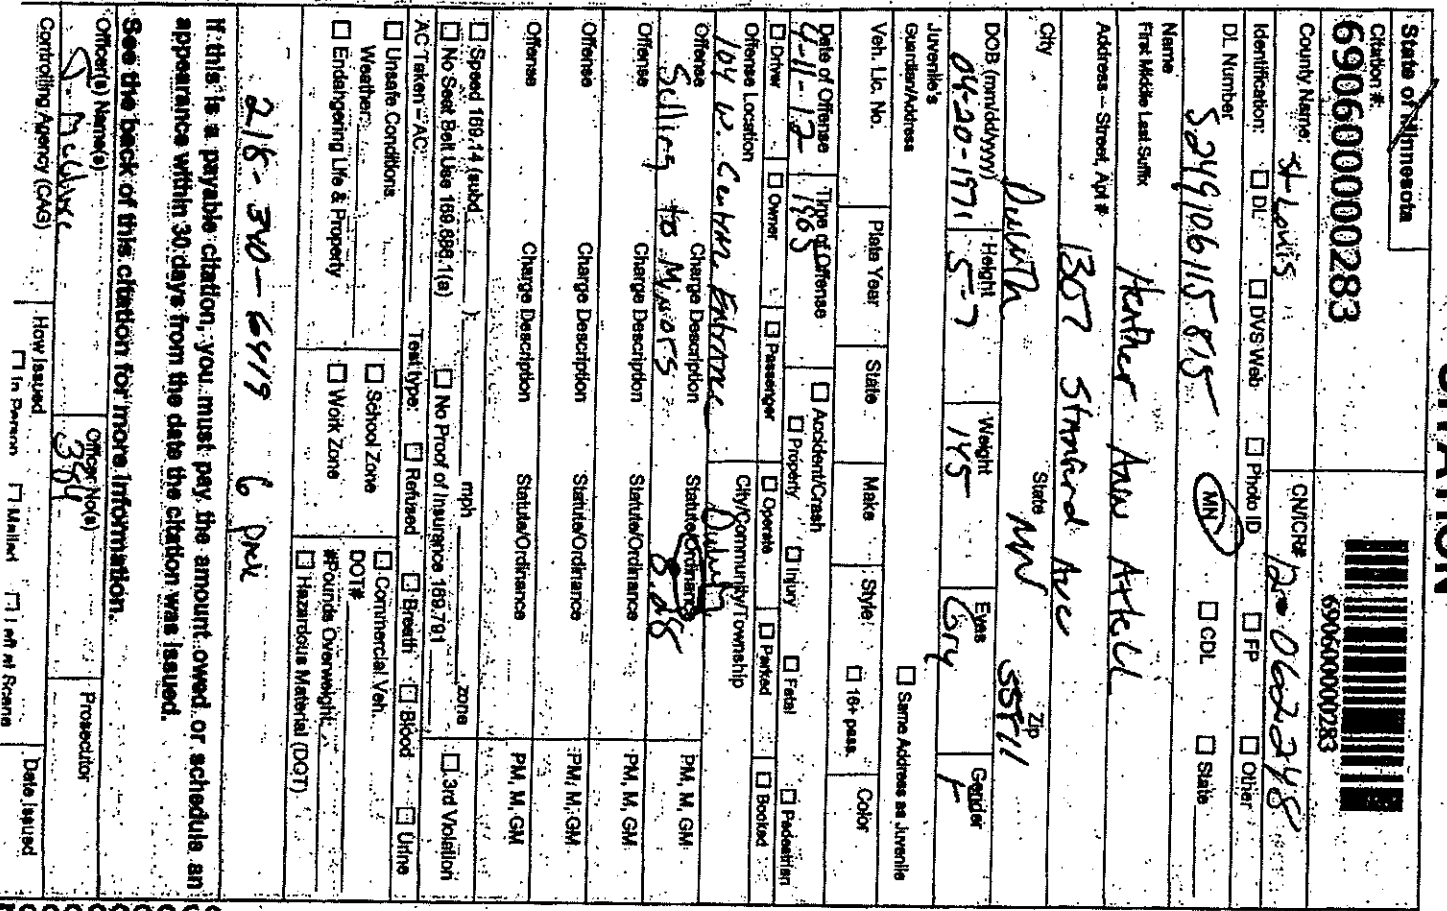 CITATION
State of Minnesota
Citation #:
690600000283
690600000283
County Name: St Louis
CN/ICR# 12-062248
Identification: ☐ DL ☐ DVS Web ☐ Photo ID ☐ FP ☐ Other
DL Number MN ☐ CDL ☐ State
Name
First Middle Last Suffix Heather Ann
Address – Street, Apt # 1307 Stanford Ave
City Duluth State MN Zip 55811
DOB (mm/dd/yyyy) 04-20-1971 Height 5-7 Weight 145 Eyes Gry Gender F
Juvenile's
Guardian/Address ☐ Same Address as Juvenile
Veh. Lic. No. Plate Year State Make Style ☐ 16+ pass. Color
Date of Offense 4-11-12 Time of Offense 1865 ☐ Accident/Crash
☐ Property ☐ Injury ☐ Fatal ☐ Pedestrian
☐ Driver ☐ Owner ☐ Passenger ☐ Operate ☐ Parked ☐ Booked
Offense Location City/Community/Township
104 W. Central Entrance Duluth
Offense Charge Description Statute/Ordinance PM, M, GM
Selling to Minors
Offense Charge Description Statute/Ordinance PM, M, GM
Offense Charge Description Statute/Ordinance PM, M, GM
Offense Charge Description Statute/Ordinance PM, M, GM
☐ Speed 169.14 (subd. ) mph zone
☐ No Seat Belt Use 169.686.1(a) ☐ No Proof of Insurance 169.791 ☐ 3rd Violation
AC Taken – AC: Test type: ☐ Refused ☐ Breath ☐ Blood ☐ Urine
☐ Unsafe Conditions ☐ School Zone ☐ Commercial Veh.
Weather: DOT#
☐ Endangering Life & Property ☐ Work Zone #Pounds Overweight
☐ Hazardous Material (DOT)
218-340-6419
If this is a payable citation, you must pay the amount owed or schedule an
appearance within 30 days from the date the citation was issued.
See the back of this citation for more information.
Officer(s) Name(s) Officer No(s) 384 Prosecutor
Controlling Agency (CAG) How Issued Date Issued
☐ In Person ☐ Mailed ☐ Left at Scene